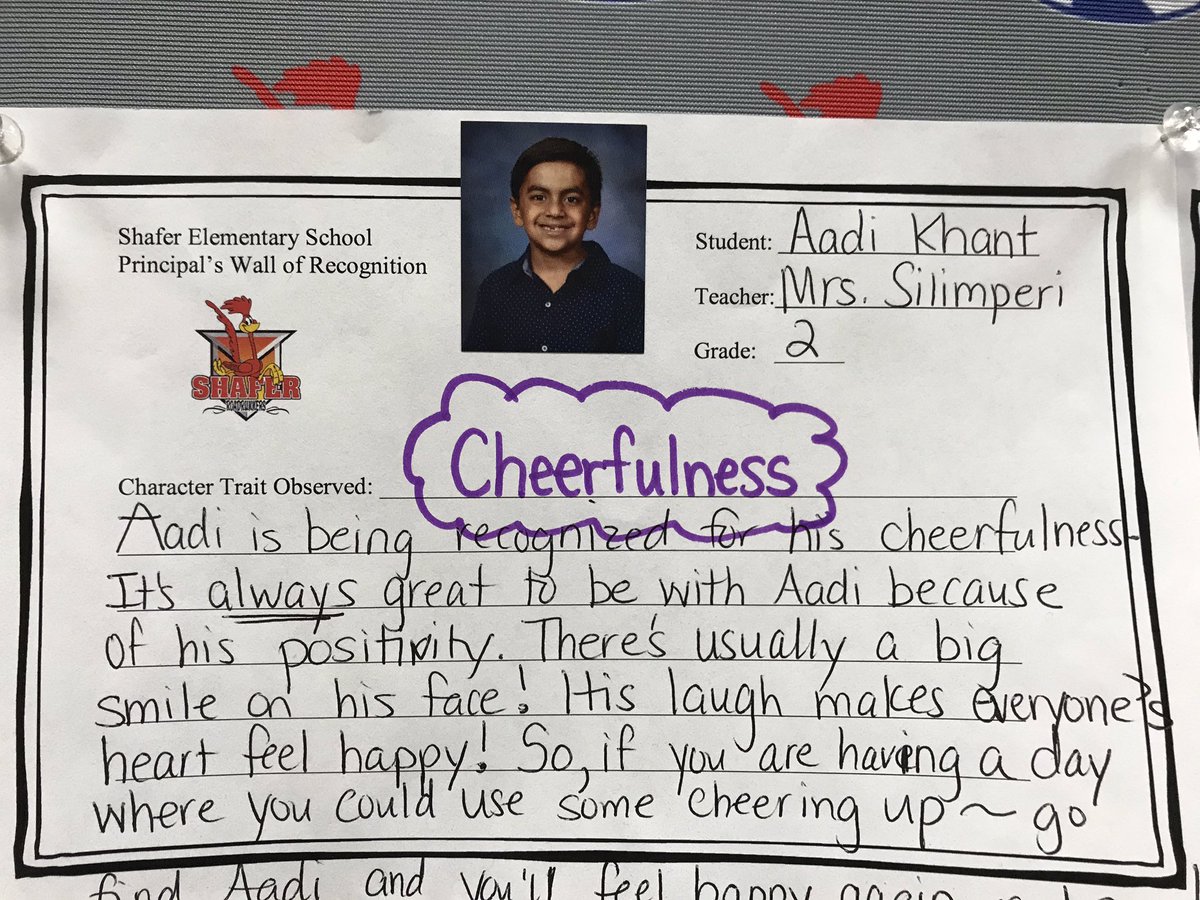 Shafer Elementary School
Principal's Wall of Recognition
SHAFER
ROADRUNNERS
Student: Aadi Khant
Teacher: Mrs. Silimperi
Grade: 2
Character Trait Observed: Cheerfulness
Aadi is being recognized for his cheerfulness.
It's always great to be with Aadi because
of his positivity. There's usually a big
smile on his face! His laugh makes everyone's
heart feel happy! So, if you are having a day
where you could use some cheering up ~ go
find Aadi and you'll feel happy again